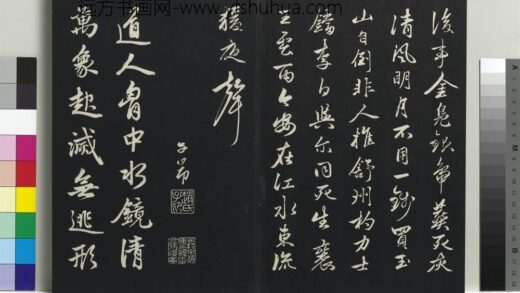 远方书画网 yfshuhua.com
後事金鳧銀鴨葬死灰
清風明月不用一錢買玉
山自倒非人推舒州杓力士
鐺李白與尔同死生襄
王雲雨今安在江水東流
猨夜聲
子昂
趙氏子昂
道人胷中水鏡清
萬象起滅無逃形